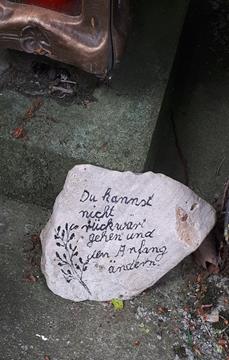 Du kannst
nicht
rückwär
gehen und
den Anfang
ändern.